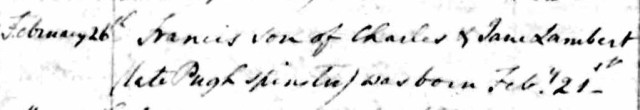 February 26th Francis son of Charles & Jane Lambert
(late Pugh Spinster) was born Feby 21st